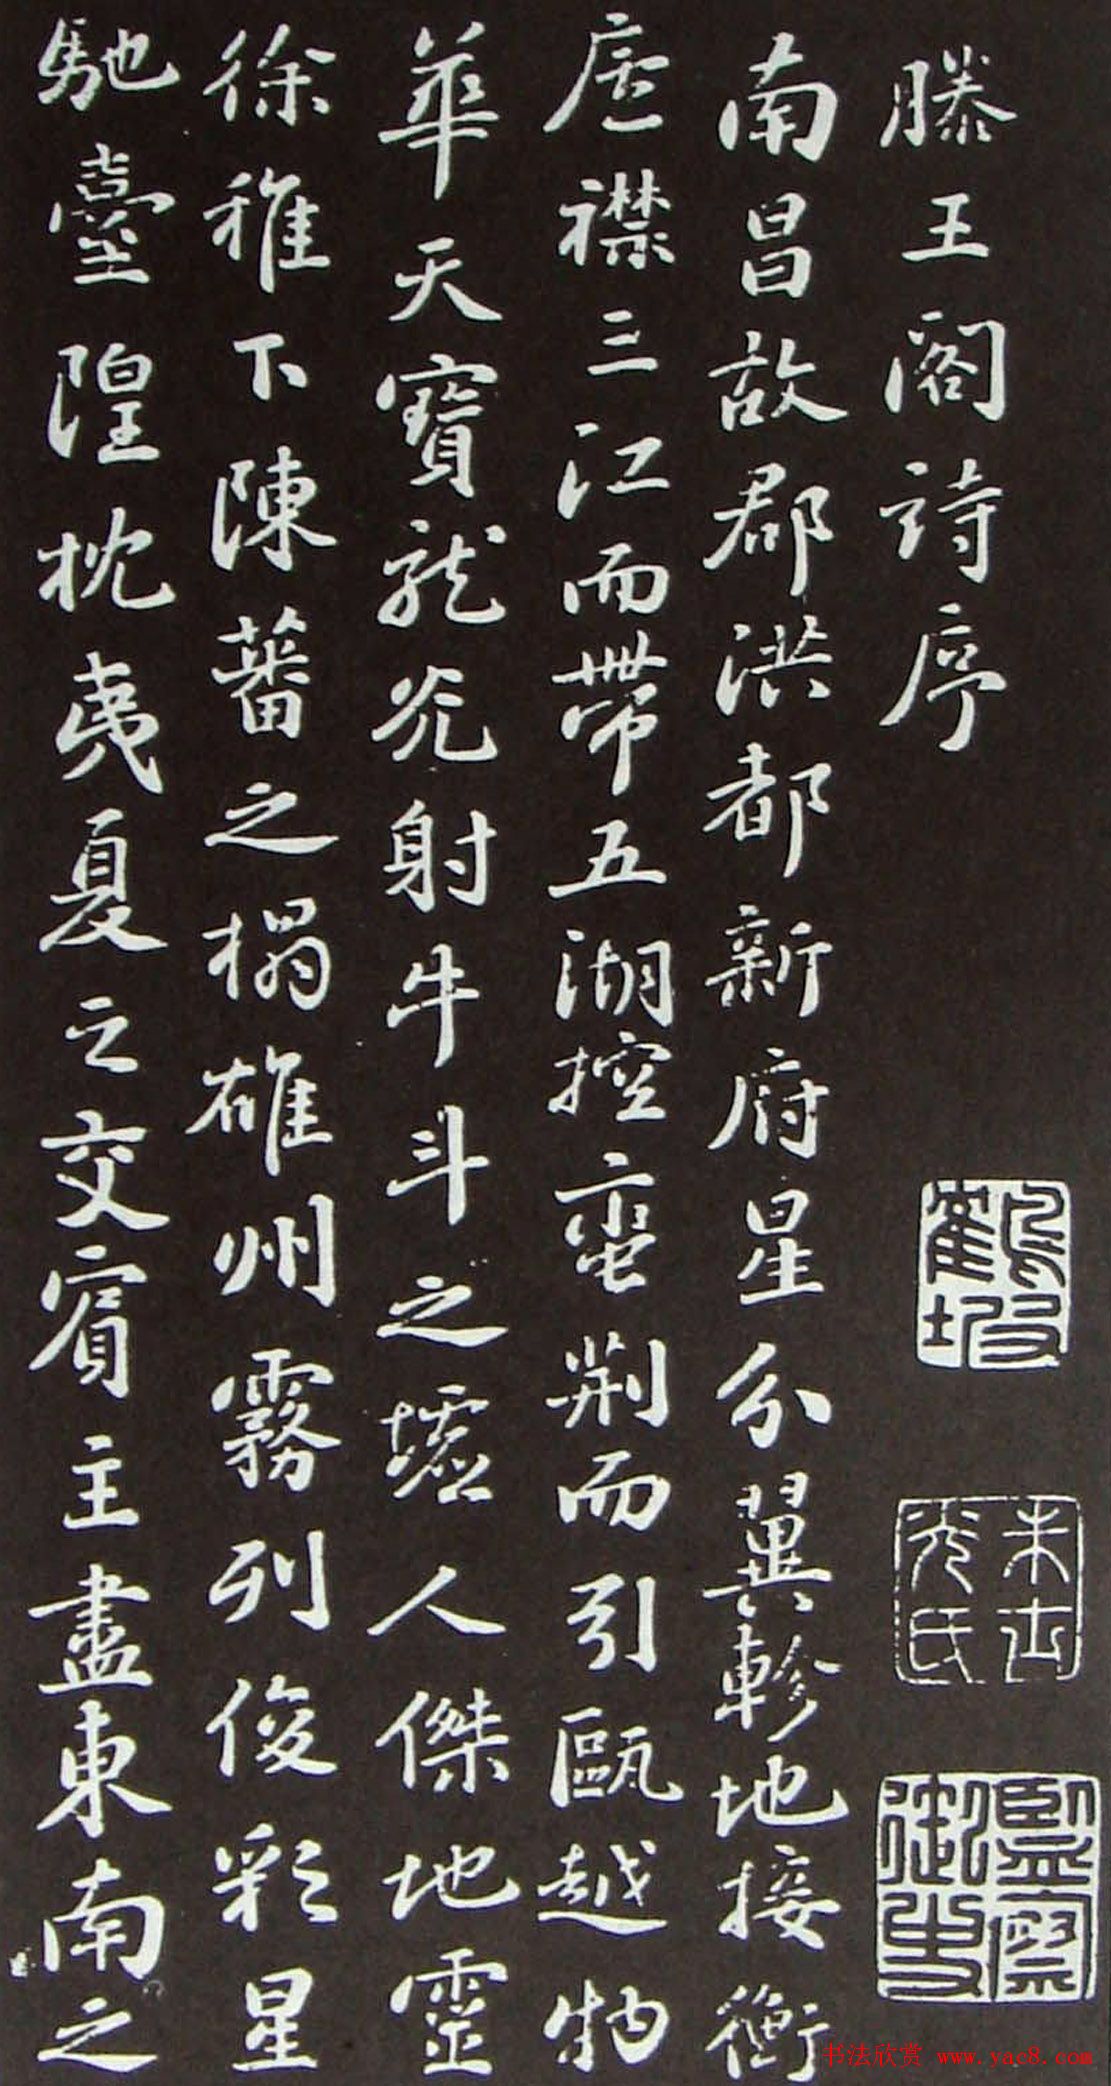 滕王閣詩序
南昌故郡洪都新府星分翼軫地接衡
廬襟三江而帶五湖控蛮荊而引甌越物
華天寶龍光射牛斗之墟人傑地靈
徐稚下陳蕃之榻雄州霧列俊彩星
馳臺隍枕夷夏之交賓主盡東南之
監察御史
书法欣赏 www.yac8.com